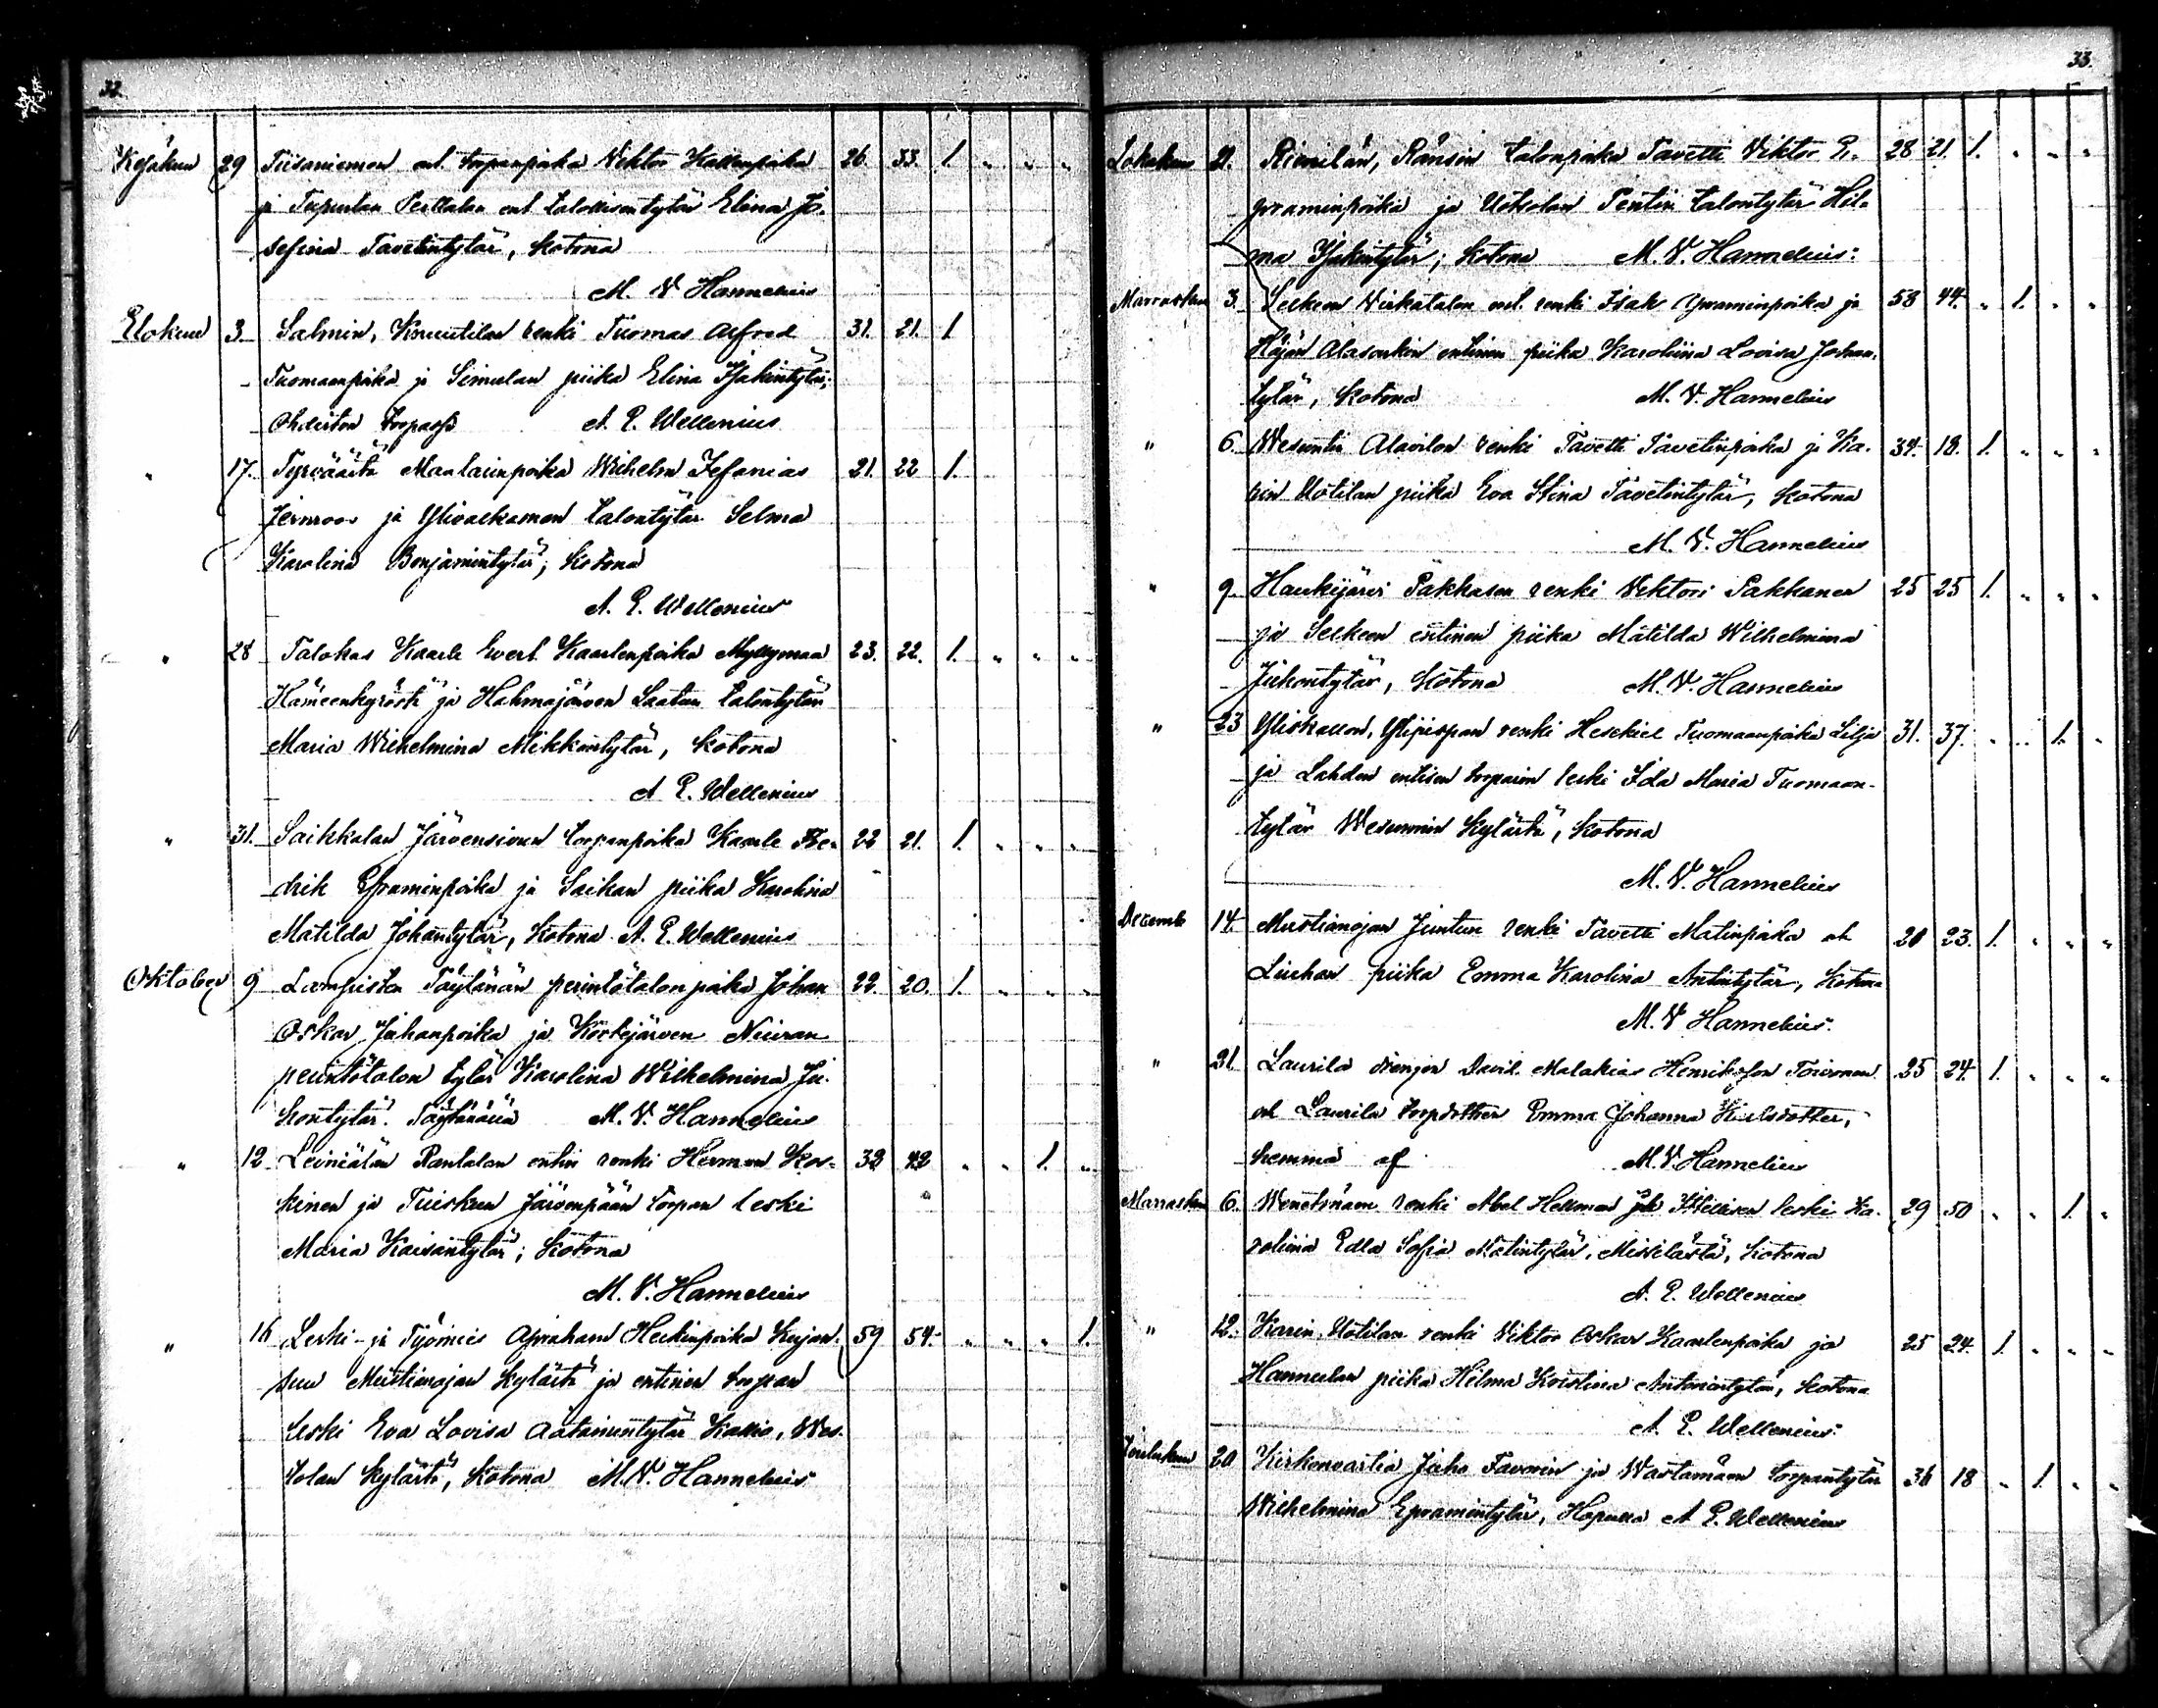 32.
Kesäkuu 29 Tiisaniemen ent. torpanpoika Viktor Kallenpoika 26. 33. 1. " " "
ja Tupurlan Perttalan ent. talollisentytär Elina Jo-
sefina Tavetintytär, Kotona
M. V. Hannelius
Elokuu 3. Salmin, Knuutilan renki Tuomas Alfred 31. 21. 1
Tuomaanpoika ja Simulan piika Elina Isakintytär,
torpassa A. E. Wellenius
" 17. Tyrväästä Maalarinpoika Wilhelm Jefanias 21. 22 1.
Jernroos ja Ylivalkaman talontytär Selma
Karolina Benjamintytär, Kotona
A. E. Wellenius
" 28 Talokas Kaarle Evert Kaarlenpoika Myllymaa 23. 22. 1. " " "
Hämeenkyröstä ja Hahmajärven Laatun talontytär
Maria Wilhelmina Mikkintytär, Kotona
A E. Wellenius
" 31. Saikkalan Järvensivun torpanpoika Kaarle Fre- 22 21. 1. " " "
drik Eframinpoika ja Saikan piika Karolina
Matilda Johantytär, Kotona A. E. Wellenius
Oktober 9 Lampisten Täytänän perintötalonpoika Johan 22. 20. 1. " " "
Oskar Juhanpoika ja Koskijärven Niuran
perintötalon tytär Karolina Wilhelmina Ju-
hontytär. Täytänässä M. V. Hannelius
" 12 Leiniälän Rantalan entin renki Herman Kos- 32 42 " " 1. "
kinen ja Tuiskun Järvenpään torpan leski
Maria Kaisantytär; Kotona
M. V. Hannelius
" 16 Leski- ja Työmies Aprahami Heikinpoika Kujan- 59 54. " " " 1.
suu Mustianojan kylästä ja entinen torpan
leski Eva Lovisa Aatamintytär Kallio, Wes-
tolan kylästä, Kotona M. V. Hannelius
33.
Lokakuu 21. Riemilän, Ränsin talonpoika Tavetti Viktor E- 28 21. 1. " " "
praminpoika ja Uotsolan Pentin talontytär Hil-
ma Isakintytär; Kotona M. V. Hannelius.
Marraskuu 3. Selkeen Virkatalon ent. renki Isak Epraminpoika ja 58 44. " 1. " "
Häjän Alasarkin entinen piika Karoliina Lovisa Johan-
tytär, Kotona M. V. Hannelius
" 6. Wesuntin Alavilan renki Tavetti Tavetinpoika ja Ka- 34. 18. 1. " " "
rin Uotilan piika Eva Stina Tavetintytär, Kotona
M. V. Hannelius
" 9. Haukijärvi Pakkasen renki Viktori Pakkanen 25 25 1. " " "
ja Selkeen entinen piika Matilda Wilhelmina
Juhontytär, Kotona M. V. Hannelius
" 23 Yliskallon, Ylipispan renki Hesekiel Tuomaanpoika Lilja 31. 37. " " 1. "
ja Lahden entisen torparin leski Ida Maria Tuomaan-
tytär Wesunnin kylästä, Kotona
M. V. Hannelius
Decemb 14. Mustianojan Juntun renki Tavetti Matinpoika ok 20 23. 1. " " "
Liuhan piika Emma Karolina Antintytär, Kotona
M. V Hannelius.
" 21. Laurila drängen David Malakias Henriksson Toivonen 25 24. 1. " " "
och Laurila torpdottren Emma Johanna Karlsdotter,
hemma af M. V. Hannelius
Marraskuu 6. renki Abel Hellman ja leski Ka- 29 50 " " 1. "
rolina Edla Sofia Matintytär, Kotona
A. E. Wellenius
" 12. Karin, Uotilan renki Viktor Oskar Kaarlenpoika ja 25 24. 1. " " "
Hannulan piika Hilma Kristina Antonintytär, Kotona
A. E. Wellenius.
Joulukuu 20 Kirkonvartia Juho Favorin ja Wastamäen torpantytär 36 18 " 1. " "
Wilhelmina Epramintytär, A. E. Wellenius